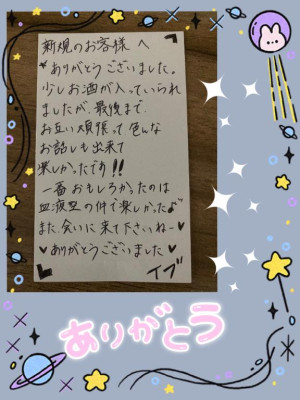 新規のお客様へ
*ありがとうございました。
少しお酒が入っていられ
ましたが、最後まで、
お互い頑張って色んな
お話しも出来て
楽しかったです!!
一番おもしろかったのは
血液型の件で楽しかった♪
また、会いに来て下さいね-♥
♥ありがとうございました♥
イブ
ありがとう